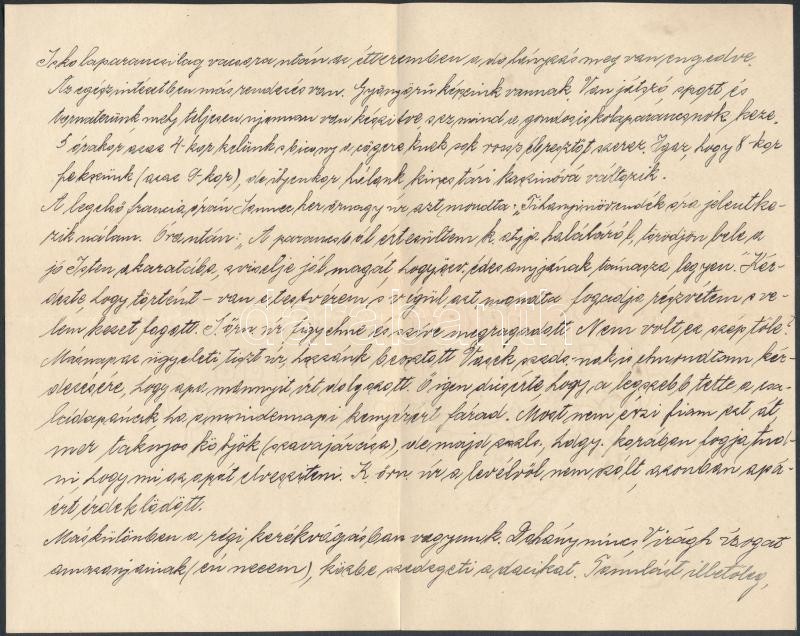 Iskolaparancsilag vacsora után az étteremben a dohányzás meg van engedve.
Az egész intézetben más rendezés van. Gyönyörű képeink vannak. Van játszó, sport, és
tornaterünk mely teljesen újonnan van készítve s ez mind a gondos iskolaparancsnok keze.
5 órakor azaz 4-kor kelünk s bizony a cögereknek sok rossz ébresztőt szerez. Igaz, hogy 8-kor
fekszünk (azaz 9-kor), de ilyenkor hálónk kincstári kaszinóvá változik.
A legelső francia órán őrnagy úr azt mondta: „Tihanyi növendék óra jelentke-
zik nálam. Óra után: „A parancsból értesültem k. atyja haláláról, törődjön bele a
jó Isten akaratába, s viselje jól magát, hogy özv. édesanyjának támasza legyen." Kér-
dezte, hogy történt – van e testvérem, s végül azt mondta fogadja részvétem s ve-
lem kezet fogott. S. őrn. úr figyelme és szíve megragadott. Nem volt ez szép tőle?
Másnap az ügyeleti tiszt úr, hozzánk beosztott száz-nak is elmondtam kér-
dezésére, hogy apa mennyit írt dolgozott. Ő igen dicsérte, hogy a legszebb tette a csa-
ládapának ha a mindennapi kenyérért fárad. Most nem érzi fiam ezt át,
mer taknyos kölyök (szavajárása), de majd hogy korában fogja tud-
ni hogy mi az apát elveszíteni. K. őrn. úr a levélről nem szólt, azonban apá-
ért érdeklődött.
Máskülönben a régi kerékvágásban vagyunk. Dohány nincs Virágh izzogat
(én necem), közbe szedegeti a dacikat. Tanulást illetőleg,
darabanth